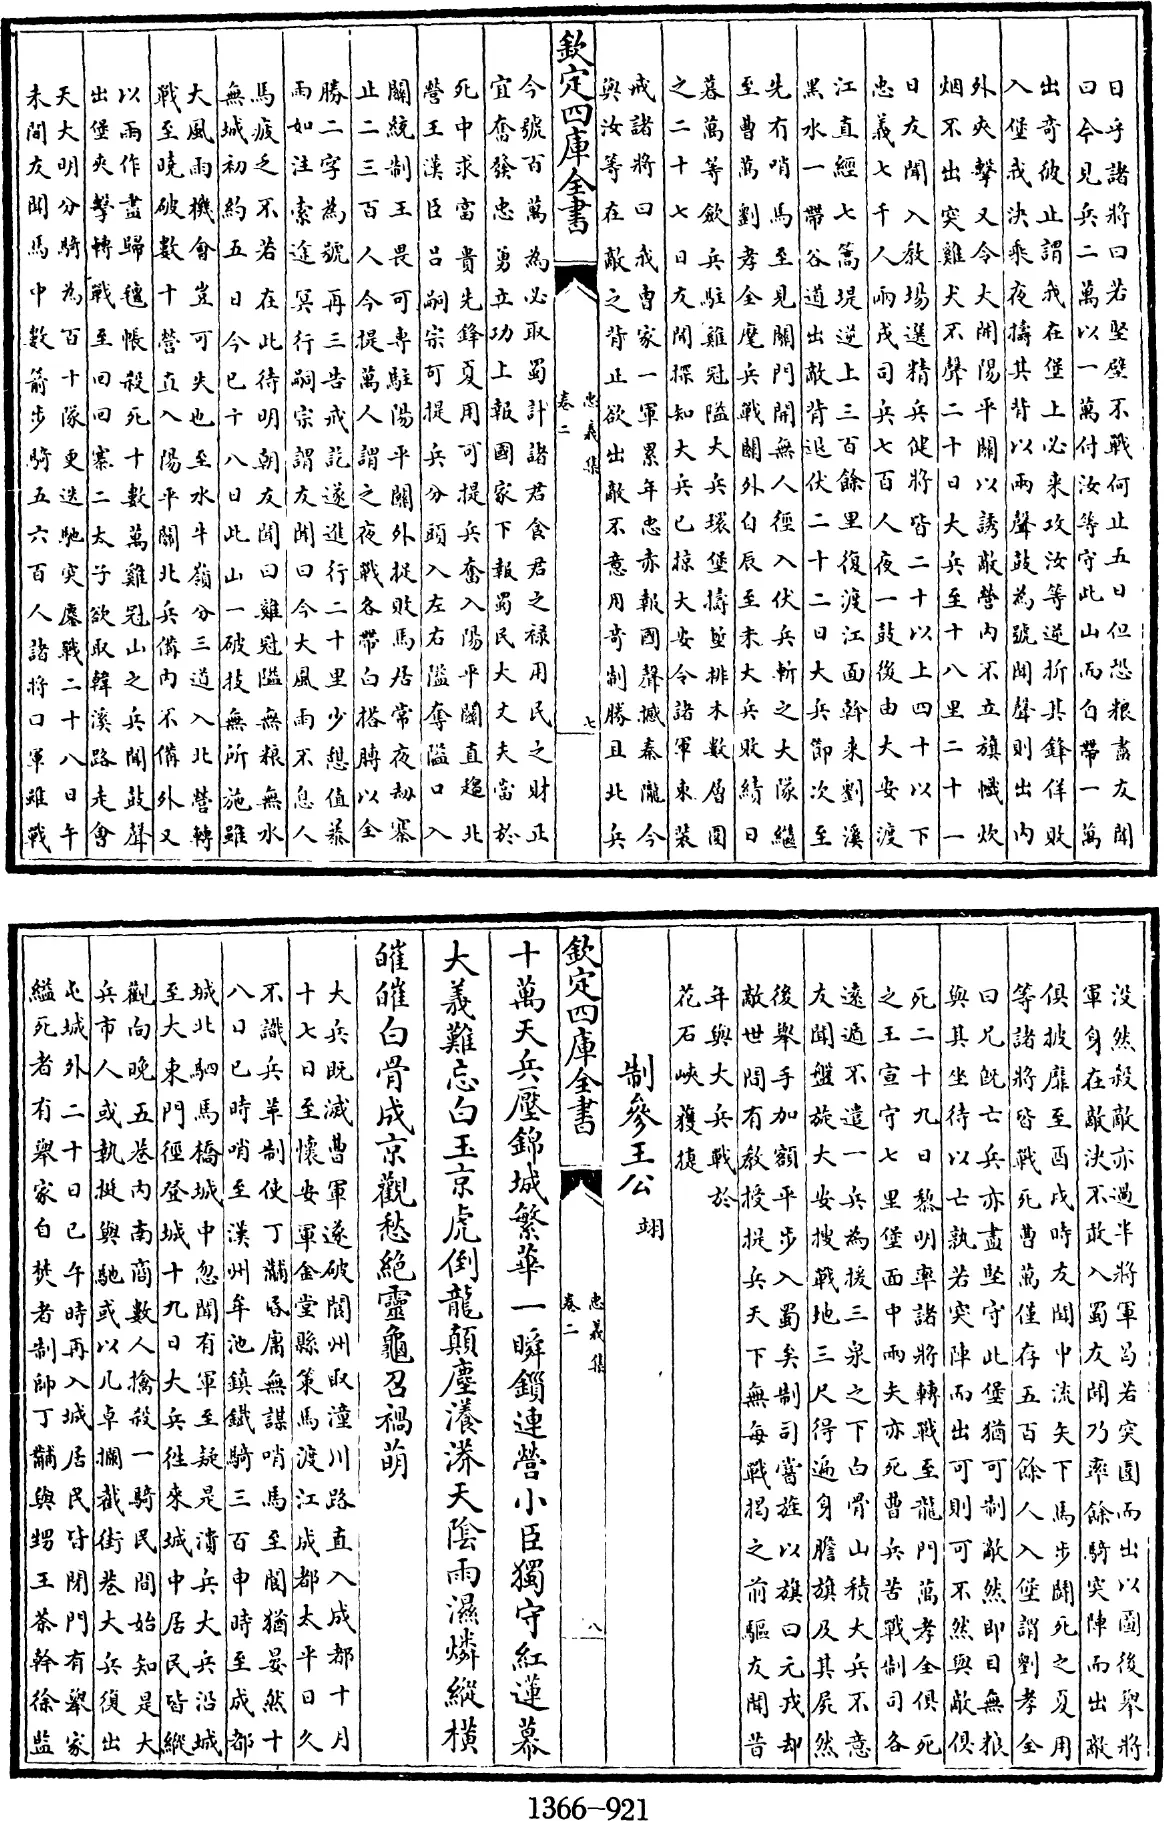 日乎諸將曰若堅壁不戰何止五日但恐粮盡友聞
曰今見兵二萬以一萬付汝等守此山而白帶一萬
出奇彼止謂我在堡上必来攻汝等逆折其鋒佯敗
入堡我決乘夜擣其背以兩聲鼓為號聞聲則出内
外夾擊又令大開陽平關以誘敵營内不立旗幟炊
烟不出突雞犬不聲二十日大兵至十八里二十一
日友聞入教場選精兵健將皆二十以上四十以下
忠義七千人兩戍司兵七百人夜一鼓後由大安渡
江直經七篙堤逆上三百餘里復渡江面幹来劉溪
黑水一帶谷道出敵背退伏二十二日大兵節次至
先有哨馬至見關門開無人徑入伏兵斬之大隊繼
至曹萬劉孝全麾兵戰關外自辰至未大兵敗績日
暮萬等斂兵駐雞冠隘大兵環堡擣並排木數層圍
之二十七日友聞探知大兵已掠大安令諸軍束裝
戒諸將曰我曹家一軍累年忠赤報國聲撼秦隴今
與汝等在敵之背正欲出敵不意用奇制勝且北兵
欽定四庫全書 忠義集 卷二 七
今號百萬為必取蜀計諸君食君之禄用民之財正
宜奮發忠勇立功上報國家下報蜀民大丈夫當於
死中求富貴先鋒夏用可提兵奮入陽平關直趨北
營王漢臣吕嗣宗可提兵分頭入左右隘奪隘口入
關統制王畏可專駐陽平關外捉敗馬居常夜刼寨
止二三百人今提萬人謂之夜戰各帶白搭膊以全
勝二字為號再三告戒訖遂進行二十里少憩值暴
雨如注索途冥行嗣宗謂友聞曰今大風雨不息人
馬疲乏不若在此待明朝友聞曰雞冠隘無粮無水
無城初約五日今已十八日此山一破技無所施雖
大風雨機會豈可失也至水牛嶺分三道入北營轉
戰至曉破數十營直入陽平關北兵備内不備外又
以雨作盡歸氊帳殺死十數萬雞冠山之兵聞鼓聲
出堡夾擊轉戰至回回寨二太子欲取韓溪路走會
天大明分騎為百十隊更迭馳突鏖戰二十八日午
未間友聞馬中數箭步騎五六百人諸將曰軍雖戰
没然殺敵亦過半將軍曷若突圍而出以圖後舉將
軍身在敵決不敢入蜀友聞乃率餘騎突陣而出敵
俱披靡至酉戍時友聞中流矢下馬步鬭死之夏用
等諸將皆戰死曹萬僅存五百餘人入堡謂劉孝全
曰兄既亡兵亦盡堅守此堡猶可制敵然即日無粮
與其坐待以亡孰若突陣而出可則可不然與敵俱
死二十九日黎明率諸將轉戰至龍門萬孝全俱死
之王宣守七里堡面中兩矢亦死曹兵苦戰制司各
遠遁不遣一兵為援三泉之下白骨山積大兵不意
友聞盤旋大安搜戰地三尺得遍身膽旗及其屍然
後舉手加額平步入蜀矣制司嘗旌以旗曰元戎却
敵世間有教授提兵天下無每戰揭之前驅友聞昔
年與大兵戰於
花石峽獲捷
制參王公翊
欽定四庫全書 忠義集 卷二 八
十萬天兵壓錦城繁華一瞬鎻連營小臣獨守紅蓮幕
大義難忘白玉京虎倒龍顛塵瀁漭天陰雨濕燐縱橫
皠皠白骨成京觀愁絶靈龜召禍萌
大兵既滅曹軍遂破閬州取潼川路直入成都十月
十七日至懷安軍金堂縣策馬渡江成都太平日久
不識兵革制使丁黼昏庸無謀哨馬至閬猶晏然十
八日巳時哨至漢州牟池鎮鐵騎三百申時至成都
城北駟馬橋城中忽聞有軍至疑是潰兵大兵沿城
至大東門徑登城十九日大兵徃來城中居民皆縱
觀向晚五巷内南商數人擒殺一騎民間始知是大
兵市人或執挺與馳或以几卓攔截街巷大兵復出
屯城外二十日巳午時再入城居民皆閉門有舉家
縊死者有舉家自焚者制帥丁黼與甥王荼幹徐監
1366-921